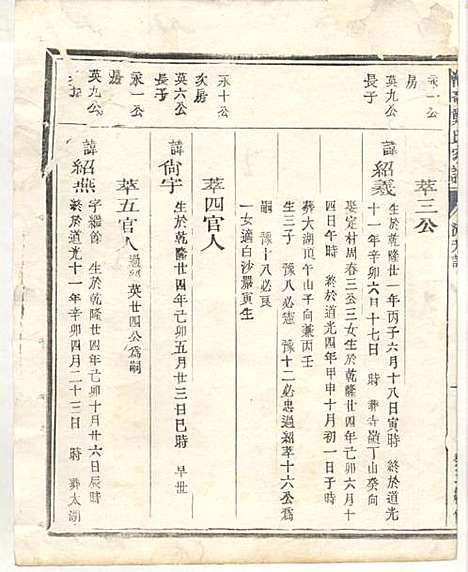 永一公
英九公
長子
萃三公
諱紹羲
生於乾隆廿一年丙子六月十八日寅時 終於道光
十一年辛卯六月十七日 時 葬寺嶺丁山癸向
娶定村周春三公三女生於乾隆廿四年己卯十月十
四日午時 終於道光四年甲申十月初一日子時
葬大湖頂午山子向兼丙壬
生三子 豫八必憲 豫十二必忠過紹萃十六公為
嗣 豫十八必艮
一女適白沙嚴寅生
永十公
次房
英六公
長子
萃四官人
諱尙宇
生於乾隆廿四年己卯五月廿三日巳時 早世
永一公
房
英九公
次子
萃五官人
過繼英廿四公為嗣
諱紹燕
字繼餘 生於乾隆廿四年己卯十月廿六日辰時
終於道光十一年辛卯四月二十三日 時 葬太湖